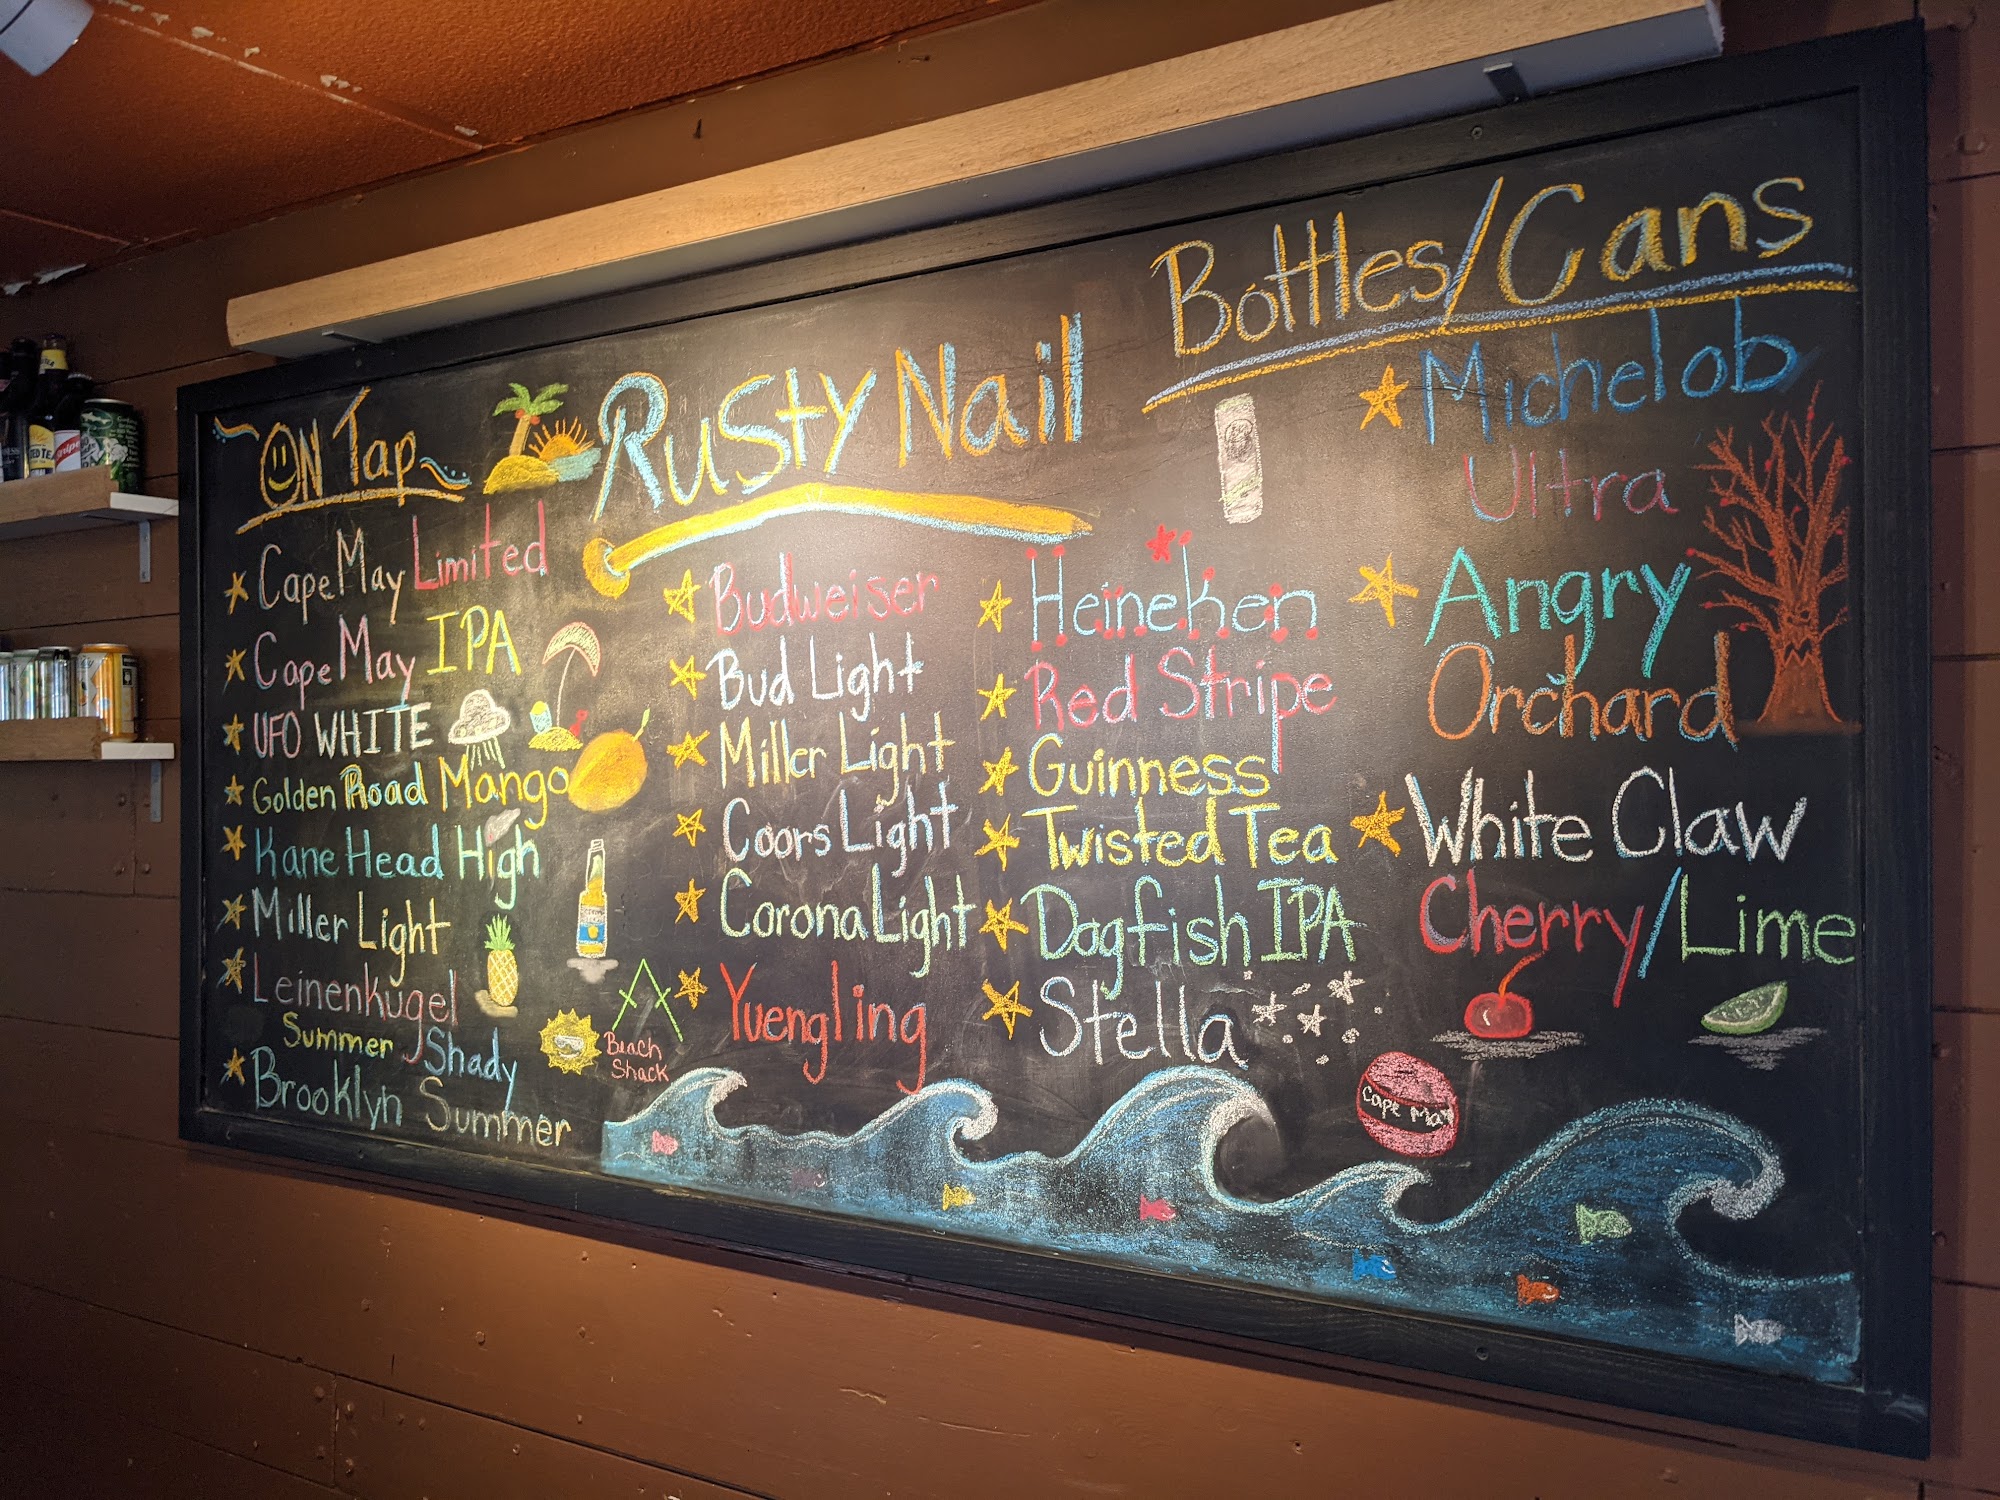 ON Tap
Cape May Limited
Cape May IPA
UFO WHITE
Golden Road Mango
Kane Head High
Miller Light
Leinenkugel
Summer Shady
Brooklyn Summer
Rusty Nail
Budweiser
Bud Light
Miller Light
Coors Light
Corona Light
Yuengling
Beach
Shack
Heineken
Red Stripe
Guinness
Twisted Tea
Dogfish IPA
Stella
Bottles/Cans
Michelob
Ultra
Angry
Orchard
White Claw
Cherry/Lime
Cape May